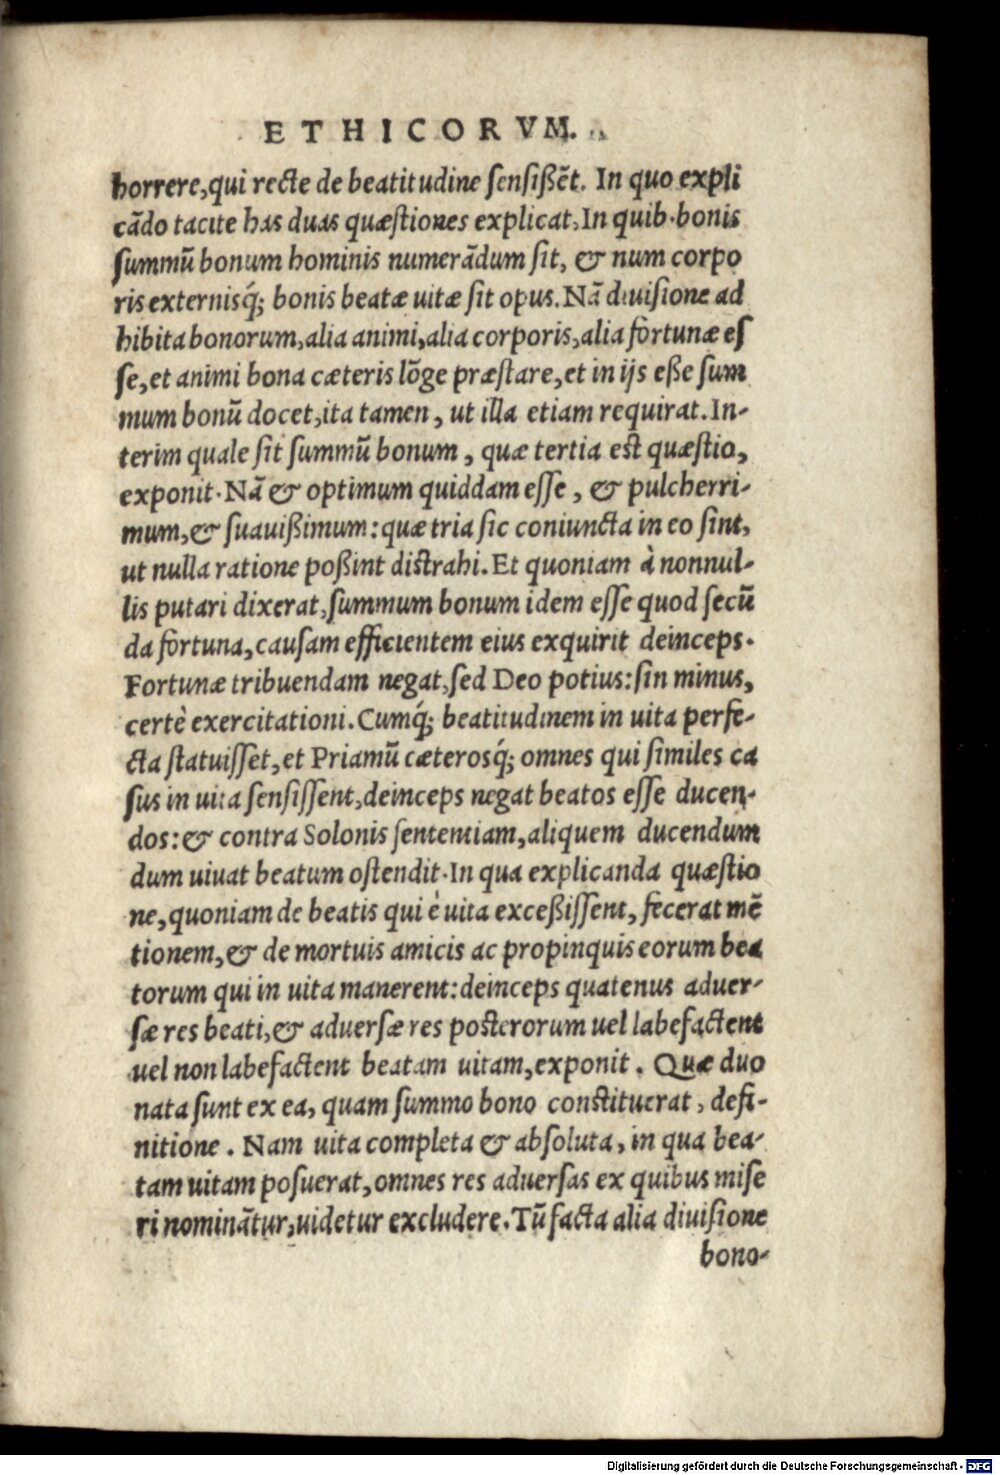 ETHICORVM.
horrere, qui recte de beatitudine ſenſißẽt. In quo expli
cãdo tacite has duas quæſtiones explicat, In quib. bonis
ſummũ bonum hominis numerãdum ſit, & num corpo
ris externisq́; bonis beatæ uitæ ſit opus. Nã diuiſione ad
hibita bonorum, alia animi, alia corporis, alia fortunæ eſ
ſe, et animi bona cæteris lõge præſtare, et in ijs eße ſum
mum bonũ docet, ita tamen, ut illa etiam requirat. In-
terim quale ſit ſummũ bonum, quæ tertia est quæſtio,
exponit. Nã & optimum quiddam eſſe, & pulcherri-
mum, & ſuauißimum: quæ tria ſic coniuncta in eo ſint,
ut nulla ratione poßint distrahi. Et quoniam à nonnul-
lis putari dixerat, ſummum bonum idem eſſe quod ſecũ
da fortuna, cauſam efficientem eius exquirit deinceps.
Fortunæ tribuendam negat, ſed Deo potius: ſin minus,
certè exercitationi. Cumq́; beatitudinem in uita perfe-
cta ſtatuiſſet, et Priamũ cæterosq́; omnes qui ſimiles ca
ſus in uita ſenſiſſent, deinceps negat beatos eſſe ducen-
dos: & contra Solonis ſententiam, aliquem ducendum
dum uiuat beatum oſtendit. In qua explicanda quæſtio
ne, quoniam de beatis qui è uita exceßiſſent, fecerat mẽ
tionem, & de mortuis amicis ac propinquis eorum bea
torum qui in uita manerent: deinceps quatenus aduer-
ſæ res beati, & aduerſæ res posterorum uel labefactent
uel non labefactent beatam uitam, exponit. Quæ duo
nata ſunt ex ea, quam ſummo bono constituerat, defi-
nitione. Nam uita completa & abſoluta, in qua bea-
tam uitam poſuerat, omnes res aduerſas ex quibus miſe
ri nominãtur, uidetur excludere. Tũ facta alia diuiſione
bono-
Digitalisierung gefördert durch die Deutsche Forschungsgemeinschaft - DFG